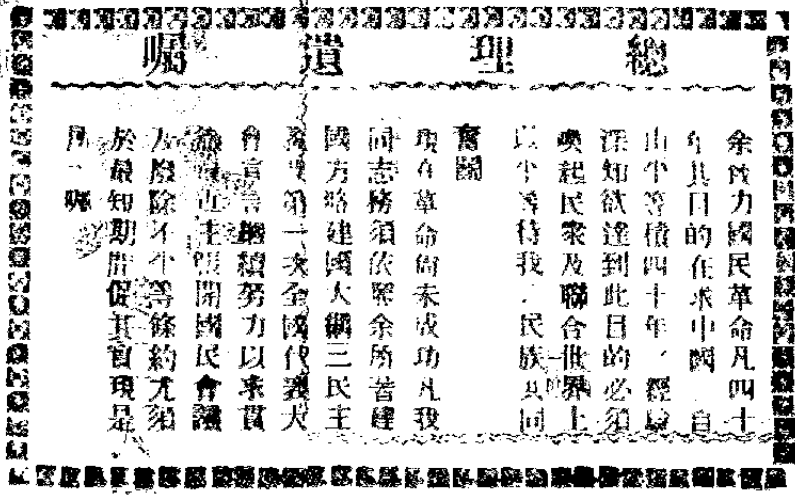 總理遺囑
余致力國民革命凡四十
年其目的在求中國自
由平等積四十年之經驗
深知欲達到此目的必須
喚起民衆及聯合世界上
以平等待我之民族共同
奮鬭
現在革命尚未成功凡我
同志務須依照余所著建
國方略建國大綱三民主
義及第一次全國代表大
會宣言繼續努力以求貫
徹最近主張開國民會議
及廢除不平等條約尤須
於最短期間促其實現是
所至囑